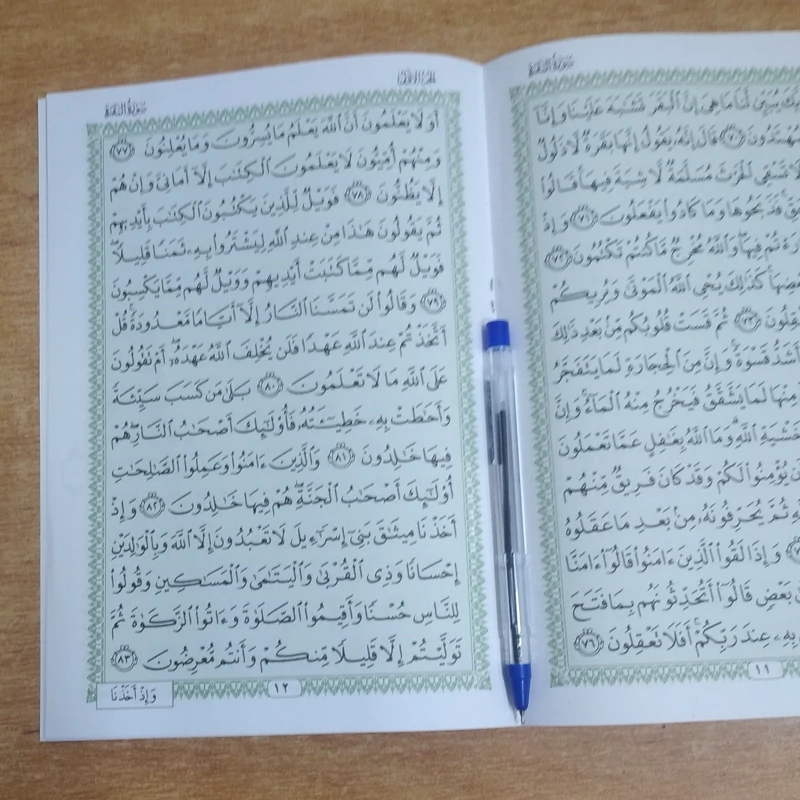 سورة البقرة
يُبَيِّن لَّنَا مَا هِىَ إِنَّ ٱلْبَقَرَ تَشَٰبَهَ عَلَيْنَا وَإِنَّآ
لَمُهْتَدُونَ ٧٠ قَالَ إِنَّهُۥ يَقُولُ إِنَّهَا بَقَرَةٌ لَّا ذَلُولٌ
تَسْقِى ٱلْحَرْثَ مُسَلَّمَةٌ لَّا شِيَةَ فِيهَا قَالُوا۟
فَذَبَحُوهَا وَمَا كَادُوا۟ يَفْعَلُونَ ٧١ وَإِذْ
فِيهَا وَٱللَّهُ مُخْرِجٌ مَّا كُنتُمْ تَكْتُمُونَ ٧٢
كَذَٰلِكَ يُحْىِ ٱللَّهُ ٱلْمَوْتَىٰ وَيُرِيكُمْ
٧٣ ثُمَّ قَسَتْ قُلُوبُكُم مِّنۢ بَعْدِ ذَٰلِكَ
أَشَدُّ قَسْوَةً وَإِنَّ مِنَ ٱلْحِجَارَةِ لَمَا يَتَفَجَّرُ
مِنْهَا لَمَا يَشَّقَّقُ فَيَخْرُجُ مِنْهُ ٱلْمَآءُ وَإِنَّ
خَشْيَةِ ٱللَّهِ وَمَا ٱللَّهُ بِغَٰفِلٍ عَمَّا تَعْمَلُونَ
يُؤْمِنُوا۟ لَكُمْ وَقَدْ كَانَ فَرِيقٌ مِّنْهُمْ
ثُمَّ يُحَرِّفُونَهُۥ مِنۢ بَعْدِ مَا عَقَلُوهُ
وَإِذَا لَقُوا۟ ٱلَّذِينَ ءَامَنُوا۟ قَالُوٓا۟ ءَامَنَّا
بَعْضٍ قَالُوٓا۟ أَتُحَدِّثُونَهُم بِمَا فَتَحَ
بِهِۦ عِندَ رَبِّكُمْ أَفَلَا تَعْقِلُونَ ٧٦
١١
سورة البقرة
أَوَلَا يَعْلَمُونَ أَنَّ ٱللَّهَ يَعْلَمُ مَا يُسِرُّونَ وَمَا يُعْلِنُونَ ٧٧
وَمِنْهُمْ أُمِّيُّونَ لَا يَعْلَمُونَ ٱلْكِتَٰبَ إِلَّآ أَمَانِىَّ وَإِنْ هُمْ
إِلَّا يَظُنُّونَ ٧٨ فَوَيْلٌ لِّلَّذِينَ يَكْتُبُونَ ٱلْكِتَٰبَ بِأَيْدِيهِمْ
ثُمَّ يَقُولُونَ هَٰذَا مِنْ عِندِ ٱللَّهِ لِيَشْتَرُوا۟ بِهِۦ ثَمَنًا قَلِيلًا
فَوَيْلٌ لَّهُم مِّمَّا كَتَبَتْ أَيْدِيهِمْ وَوَيْلٌ لَّهُم مِّمَّا يَكْسِبُونَ
٧٩ وَقَالُوا۟ لَن تَمَسَّنَا ٱلنَّارُ إِلَّآ أَيَّامًا مَّعْدُودَةً قُلْ
أَتَّخَذْتُمْ عِندَ ٱللَّهِ عَهْدًا فَلَن يُخْلِفَ ٱللَّهُ عَهْدَهُۥٓ أَمْ تَقُولُونَ
عَلَى ٱللَّهِ مَا لَا تَعْلَمُونَ ٨٠ بَلَىٰ مَن كَسَبَ سَيِّئَةً
وَأَحَٰطَتْ بِهِۦ خَطِيٓـَٔتُهُۥ فَأُو۟لَٰٓئِكَ أَصْحَٰبُ ٱلنَّارِ هُمْ
فِيهَا خَٰلِدُونَ ٨١ وَٱلَّذِينَ ءَامَنُوا۟ وَعَمِلُوا۟ ٱلصَّٰلِحَٰتِ
أُو۟لَٰٓئِكَ أَصْحَٰبُ ٱلْجَنَّةِ هُمْ فِيهَا خَٰلِدُونَ ٨٢ وَإِذْ
أَخَذْنَا مِيثَٰقَ بَنِىٓ إِسْرَٰٓءِيلَ لَا تَعْبُدُونَ إِلَّا ٱللَّهَ وَبِٱلْوَٰلِدَيْنِ
إِحْسَانًا وَذِى ٱلْقُرْبَىٰ وَٱلْيَتَٰمَىٰ وَٱلْمَسَٰكِينِ وَقُولُوا۟
لِلنَّاسِ حُسْنًا وَأَقِيمُوا۟ ٱلصَّلَوٰةَ وَءَاتُوا۟ ٱلزَّكَوٰةَ ثُمَّ
تَوَلَّيْتُمْ إِلَّا قَلِيلًا مِّنكُمْ وَأَنتُم مُّعْرِضُونَ ٨٣
١٢
وَإِذْ أَخَذْنَا